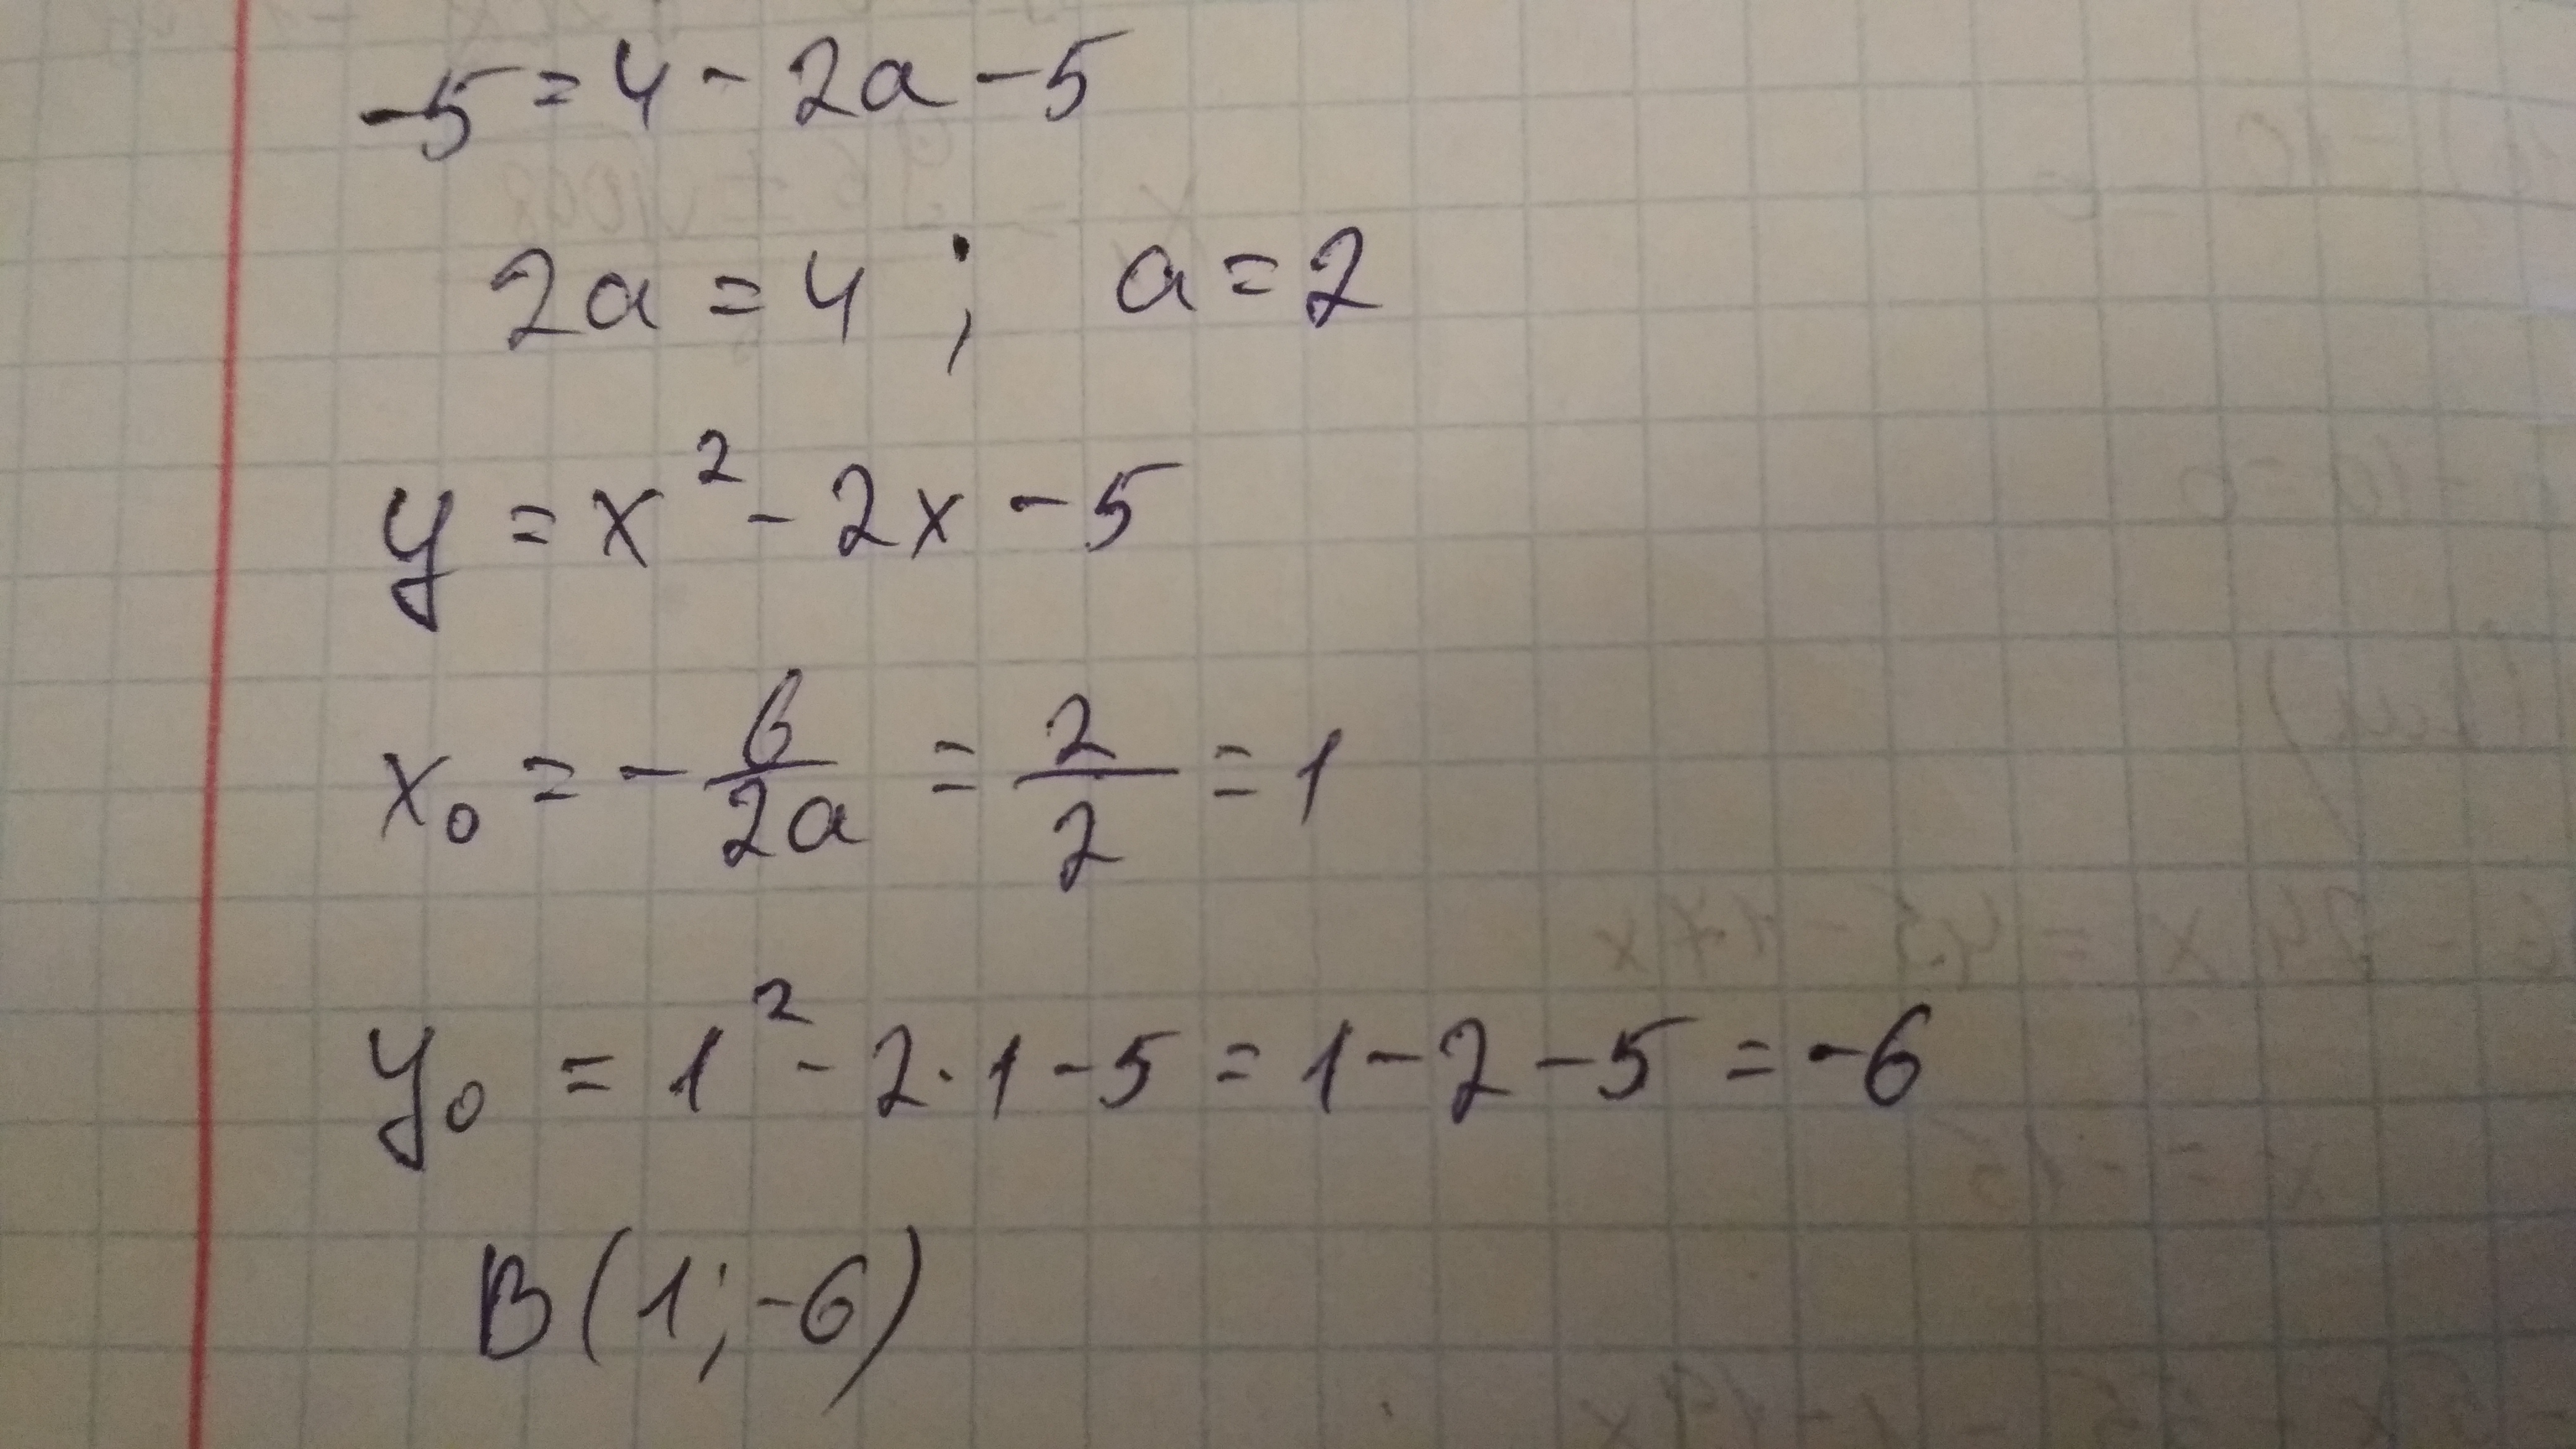 -5 = 4 - 2a - 5
2a = 4 ; a = 2
y = x² - 2x - 5
x₀ = - b/2a = 2/2 = 1
y₀ = 1² - 2·1 - 5 = 1 - 2 - 5 = -6
B(1; -6)